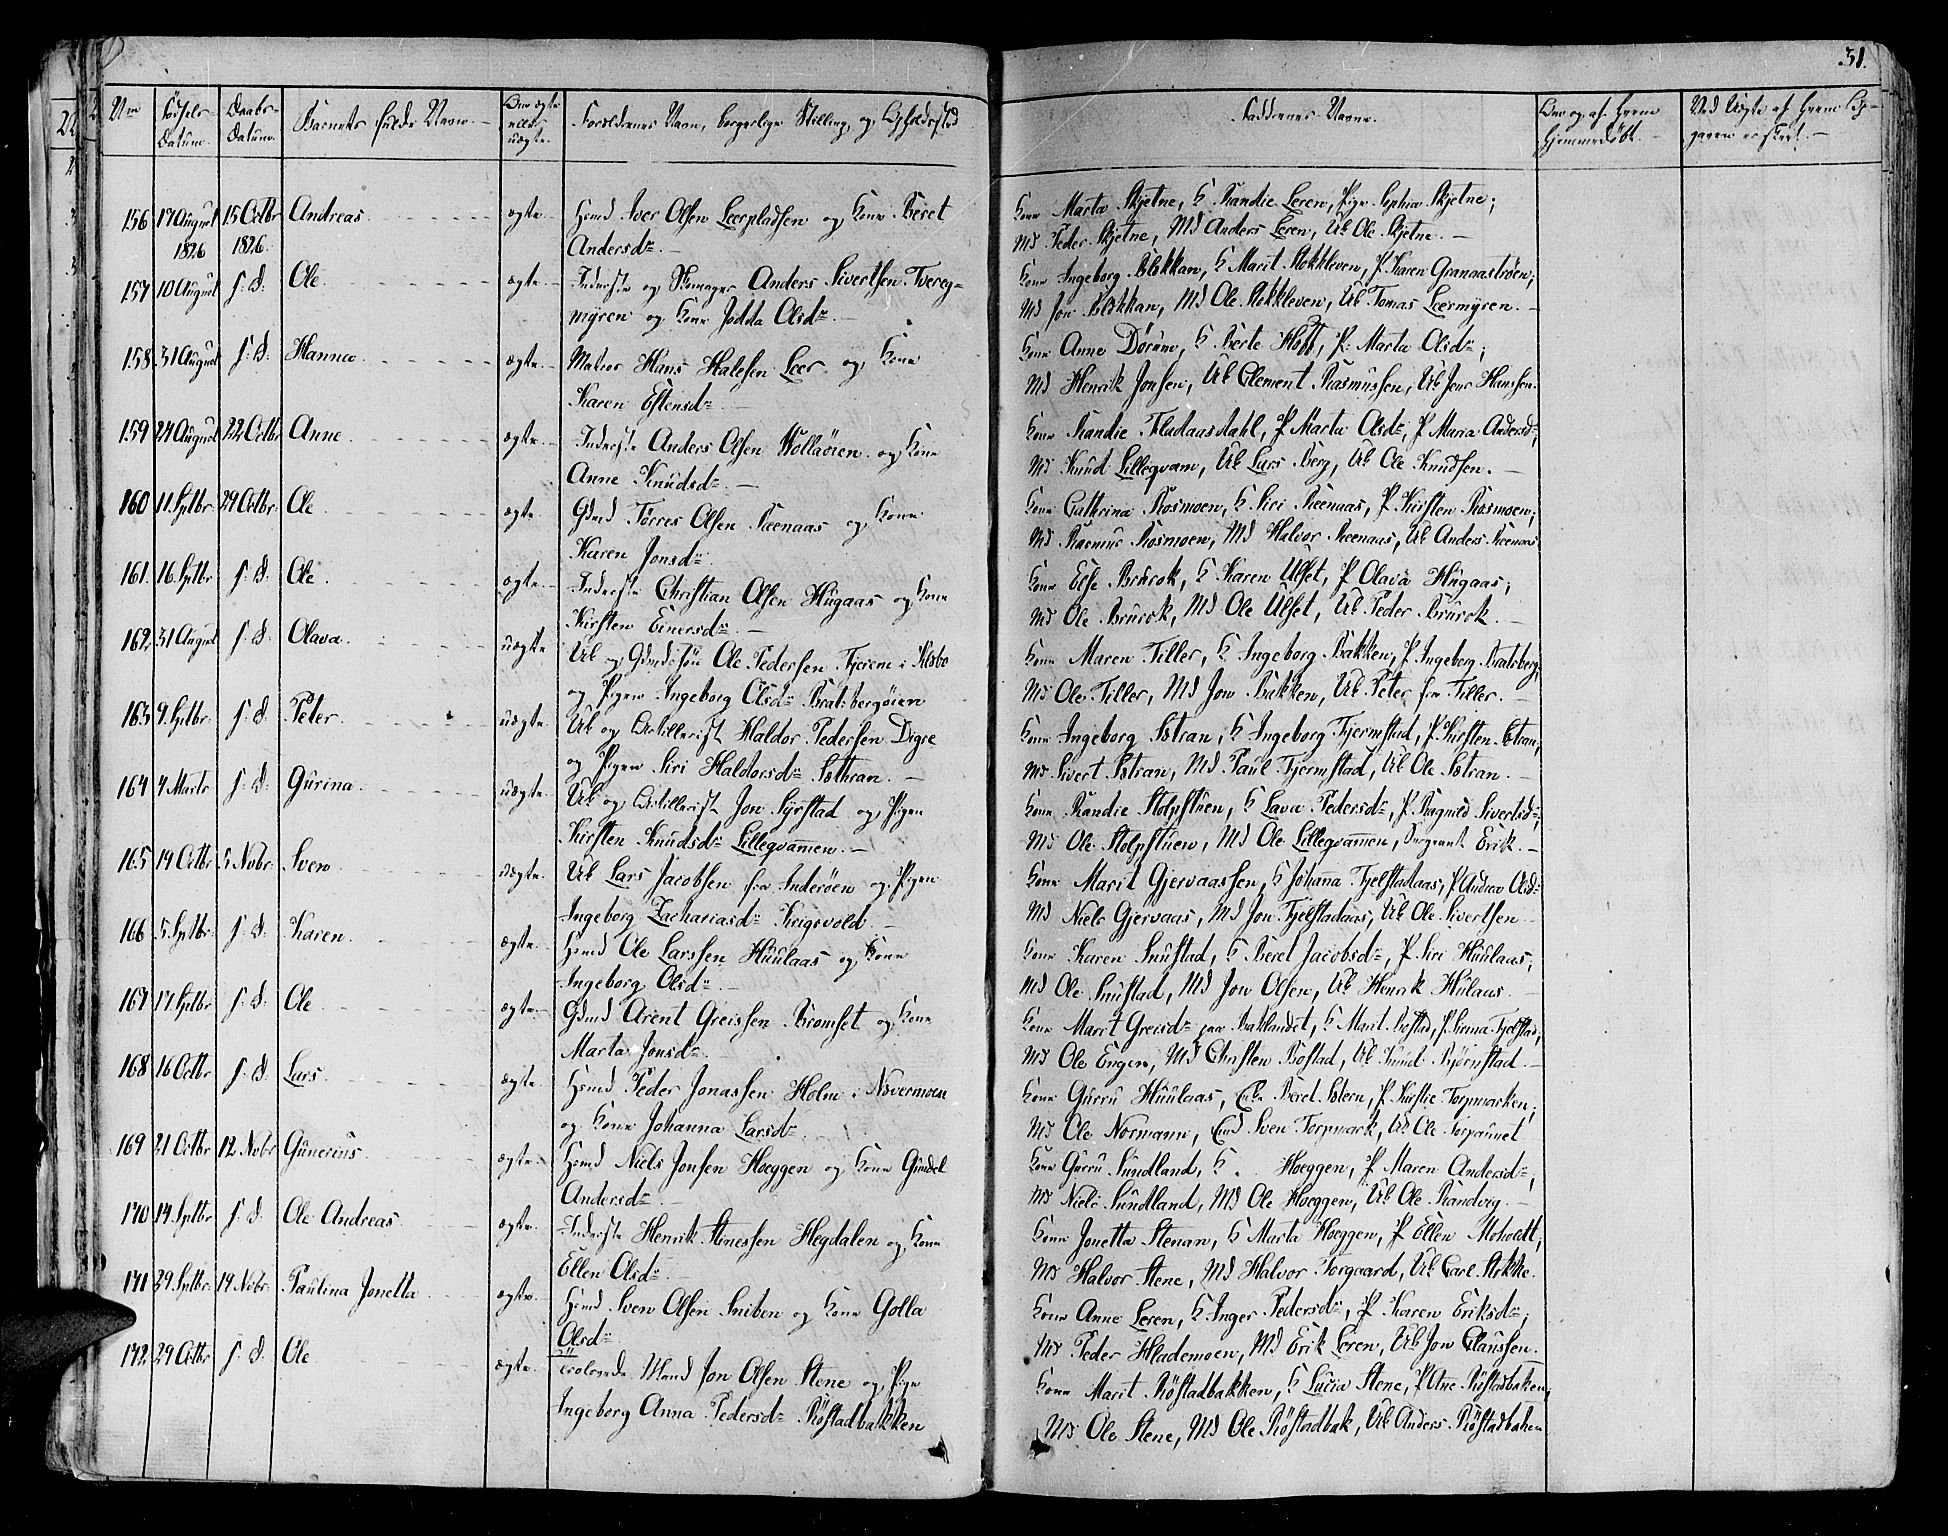 31.
Nro Fødsels- Daabs- Barnets fulde Navn. Om ægte Forældrenes Navn, borgerlige Stilling, og Opholdssted
Datum. Datum. eller uægte.
Faddernes Navne. Om og af hvem Hjemmedøbt.
156 17 August 1826 15 Octbr 1826. Andreas ægte. Hsmd Iver Olsen Leerpladsen og Kone Beret
Andersdr.
Kone Marta Skjetne, K Randie Leren, Pige Sophia Skjetne;
Md Peder Skjetne, Md Anders Leren, Uk Ole Skjetne.
157 10 August s. d. Ole ægte. Inderste og Skomager Anders Sivertsen Tvereg-
myren og Kone Jødda Olsdr.
Kone Ingeborg Blokkan, K Marit Stokkleven, P. Karen Granaastrøen;
Md Jon Blokkan, Md Ole Stokkleven, Uk Tomas Leermyren.
158. 31 August s. d. Hanna ægte. Matros Hans Halesen Leer og Kone
Karen Estensdr.
Kone Anne Dørum, K Berte Hoff, P. Marta Olsdr;
Md Henrik Jonsen, Uk Clement Rasmussen, Uk Jens Hansen.
159 24 August 22 Octbr Anne ægte. Inderste Anders Olsen Wollaøien og Kone
Anne Knudsdr.
Kone Randie Fladaasdahl, P Marta Olsdr, P Maria Andersdr,
Md Knud Lillegvam, Uk Lars Berg, Uk Ole Knudsen.
160 11. Sptbr. 29 Octbr. Ole ægte. Gdmd Tørres Olsen Reenaas og Kone
Karen Jonsdr.
Kone Cathrina Rosmoen, K Siri Reenaas, P Kirsten Rosmoen;
Md Rasmus Rosmoen, Md Halvor Reenaas, Uk Anders Reenaas
161. 16. Sptbr s. d. Ole ægte. Inderste Christian Olsen Hugaas og Kone
Kirsten Einersdr.
Kone Else Brurok, K Karen Ulset, P Olava Hugaas;
Md Ole Brurok, Md Ole Ulset, Uk Peder Brurok.
162 31 August s. d. Olava uægte Uk og Gdmdssøn Ole Pedersen Tjerem i Klebo
og Pigen Ingeborg Olsdr Bratsbergøien
Kone Maren Tiller, K Ingeborg Bakken, P Ingeborg Bratsberg,
Md Ole Tiller, Md Jon Bakken, Uk Peter fra Tiller.
163 9. Sptbr. s. d. Peter uægte. Uk og Artillerist Haldor Pedersen Digre
og Pigen Siri Haldorsdr Østhran.
Kone Ingeborg Østran, K Ingeborg Tjermstad, P Kirsten Østran,
Md Sivert Østran, Md Paul Tjermstad, Uk Ole Østran.
164 4 Marts s. d. Gurina uægte. Uk og Artillerist Jon Syrstad og Pigen
Kirsten Knudsdr Lillegvammen.
Kone Randie Stolpstuen, K Lava Pedersdr, P Ragnild Sivertsdr;
Md Ole Stolpstuen, Md Ole Lillegvammen, Sergeant Erik.
165 19 Octbr 5 Nvbr. Sven uægte. Uk Lars Jacobsen fra Inderøen og Pigen
Ingeborg Zachariasdr Krigsvold
Kone Marit Gjervaassen, K Johana Fjelstadaas, P Andrea Olsdr
Md Niels Gjervaas, Md Jon Fjelstadaas, Uk Ole Sivertsen
166 5. Sptbr. s. d. Karen. ægte. Hsmd Ole Larssen Huulaas og Kone
Ingeborg Olsdr
Kone Karen Snustad, K Beret Jacobsdr, P Siri Huulaas;
Md Ole Snustad, Md Jon Olsen, Uk Henrik Hulaas.
167 17. Sptbr s. d. Ole ægte Gdmd Arent Greissen Bromset og Kone
Marta Jonsdr.
Kone Marit Greisdr paa Baklandet, K Marit Rostad, P. Sirena Fjelstad,
Md Ole Engen, Md Christen Rostad, Uk Knud Bjørnstad
168 16 Octbr s. d. Lars. ægte. Hsmd Peder Jonassen Holm i Nøvermoen
og Kone Johanna Larsdr.
Kone Gurru Huulaas, Enke Beret Østern, P Kirstie Torpmarken;
Md Ole Normann, Emd Sven Torpmark, Uk Ole Torpaunet
169 21 Octbr 12 Nvbr Gunerius. ægte. Hsmd Niels Jonsen Hoeggen og Kone Gundel
Andersdr
Kone Gurru Sundland, K. Hoeggen, P Maren Andersdr,
Md Niels Sundland, Md Ole Hoeggen, Uk Ole Randvig.
170 14. Sptbr s. d. Ole Andreas ægte. Inderste Henrik Stenessen Hegdalen og Kone
Ellen Olsdr
Kone Jonetta Stenan, K Marta Hoeggen, P Ellen Moholtt,
Md Halvor Stene, Md Halvor Torgaard, Uk Carl Stokke.
171 29. Sptbr. 19 Nvbr. Paulina Jonetta ægte Hsmd Sven Olsen Sniben og Kone Golla
Olsdr
Kone Anne Leren, K Inger Pedersdr, P Karen Eriksdr;
Md Peder Hlademoen, Md Erik Leren, Uk Jon Claussen.
172. 29 Octbr s. d. Ole ægte. Trolovede Mand Jon Olsen Stene og Pige
Ingeborg Anna Pedersdr Røstadbakken
Kone Marit Røstadbakken, K Lucia Stene, P Ane Røstadbaken,
Md Ole Stene, Md Ole Røstadbak, Uk Anders Røstadbaken